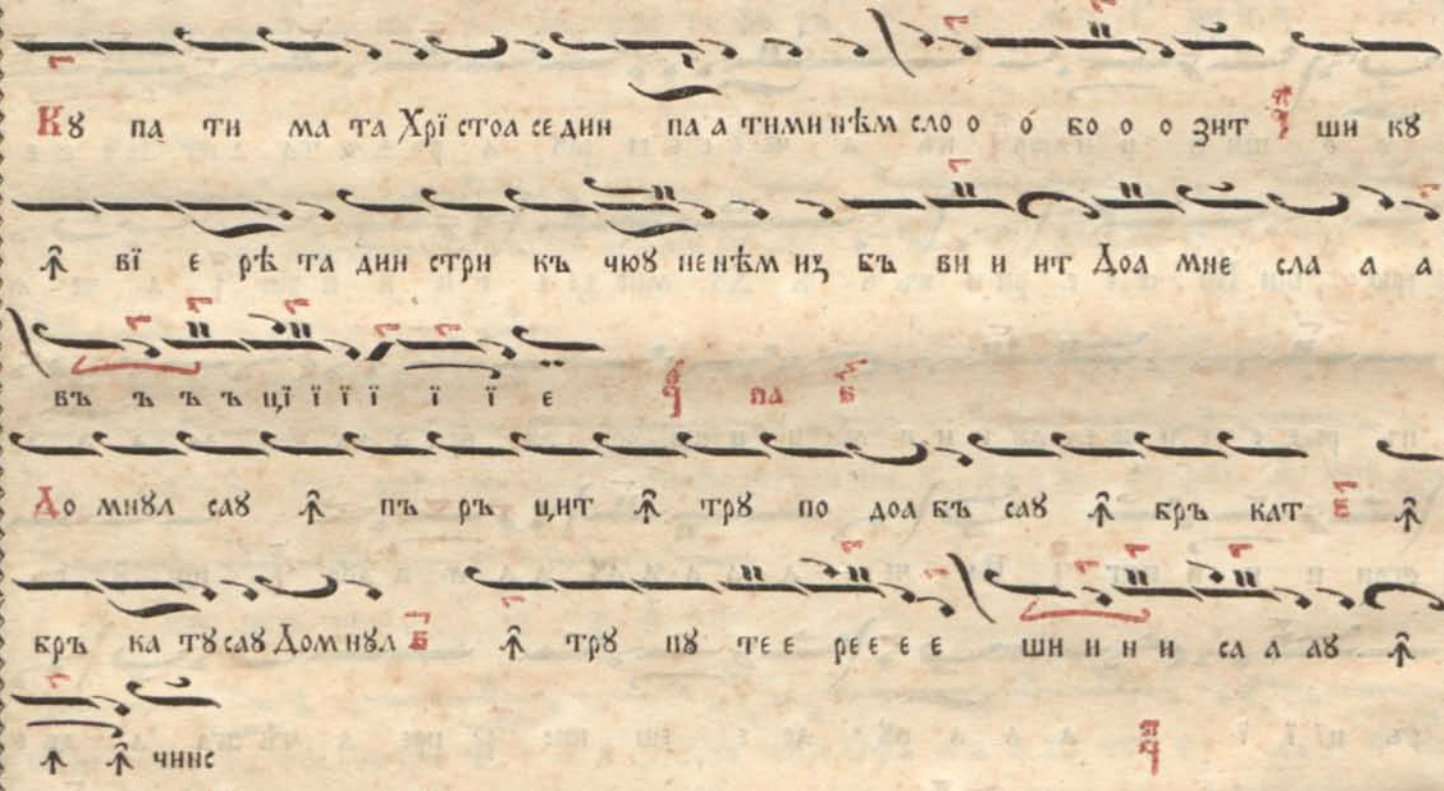 Кꙋ па ти ма та Хрї стоа се дин па а тими нѣм сло о о́ бо о о зит ши кꙋ
ꙟ҆ вї е рѣ та дин стри къ чюꙋ не нѣм иꙁ бъ ви и ит Доа мне сла а а
въ ъ ъ ъ цї ї ї ї ї ї е па
До мнꙋл саꙋ ꙟ҆ пъ ръ цит ꙟ҆ трꙋ по доа бъ саꙋ ꙟ҆ бръ кат ꙟ҆
бръ ка тꙋ саꙋ Дом нꙋл ꙟ҆ трꙋ пꙋ те е ре е е е ши и и и са а аꙋ ꙟ҆
ꙟ ꙟ҆ чинс